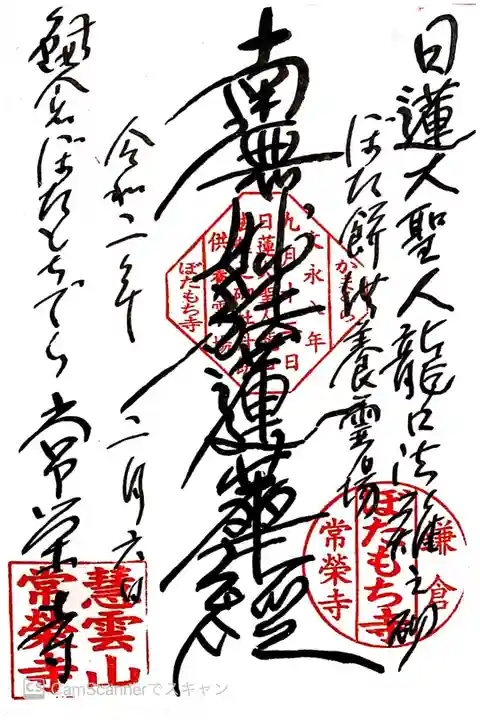 日蓮大聖人龍口法難之砌
ぼた餅供養霊場
南無妙法蓮華経
かまくら
文永八年
九月十二日
ぼたもち寺
鎌倉
ぼたもち寺
常榮寺
令和二年 二月六日
鎌倉ぼたもちでら 常栄寺
慧雲山
常榮寺
CS CamScannerでスキャン